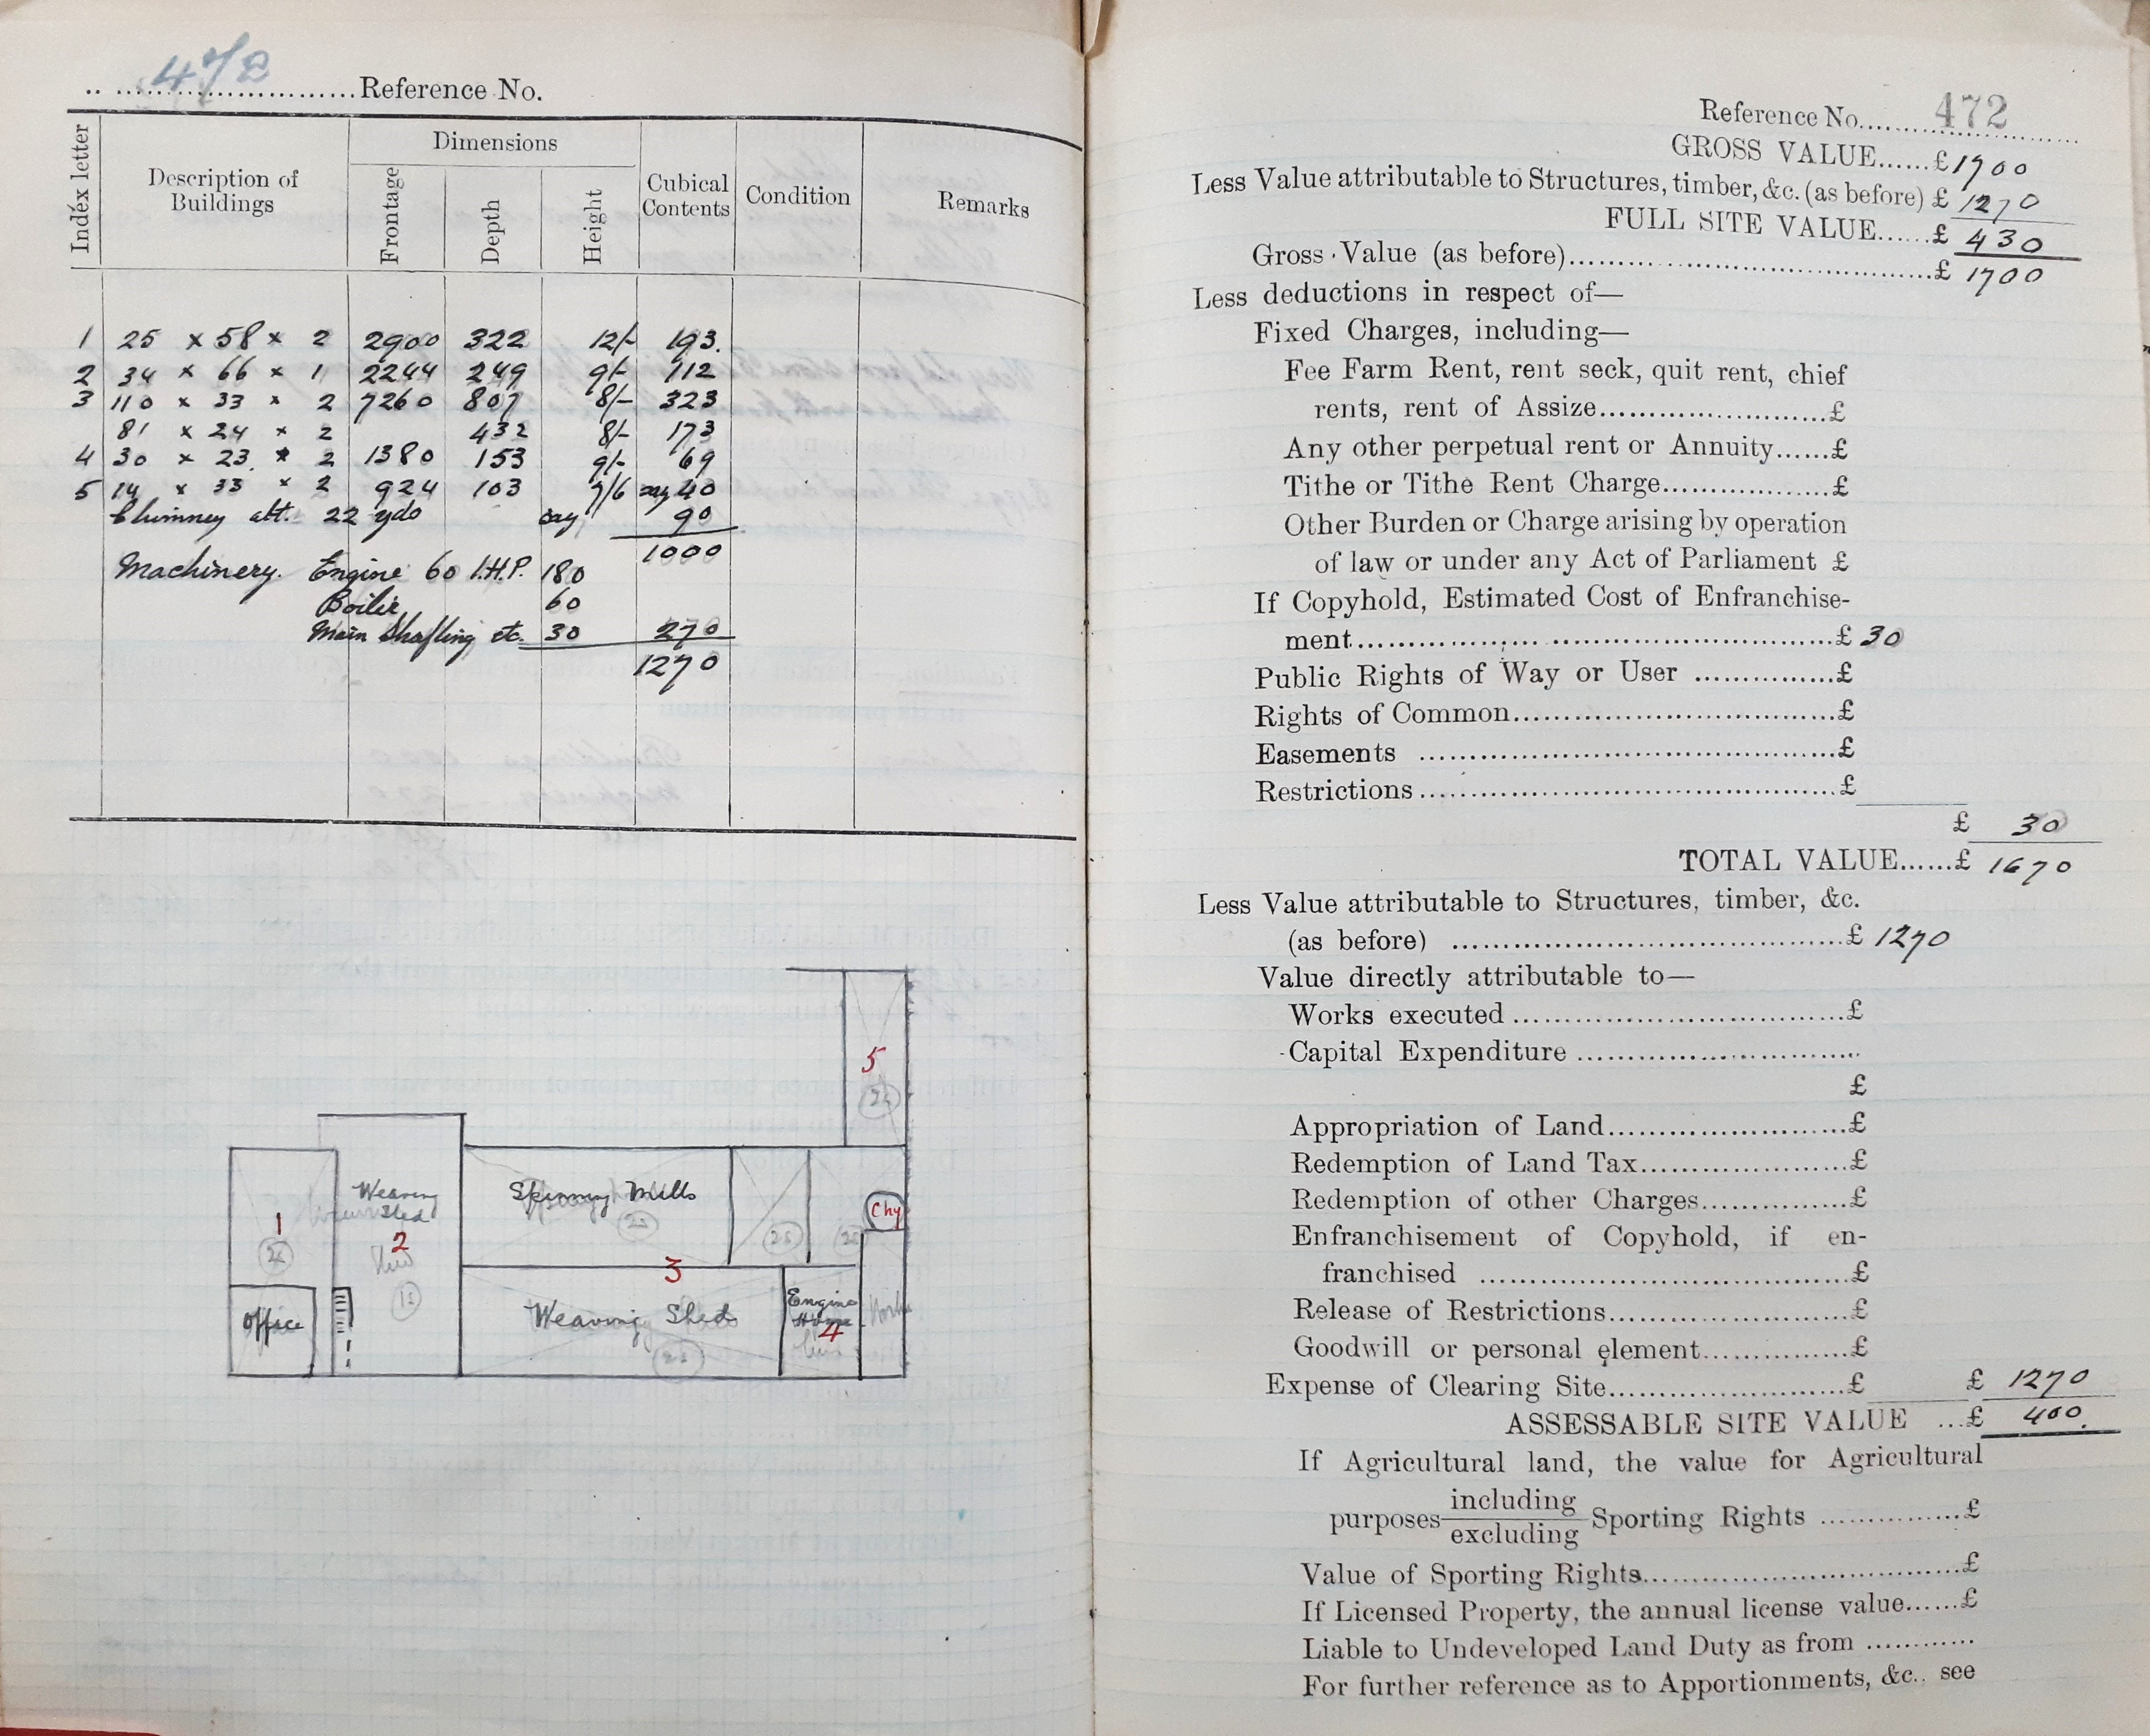 472 Reference No.
Index letter
Description of Buildings
Dimensions
Frontage
Depth
Height
Cubical Contents
Condition
Remarks
1 25 x 58 x 2 2900 322 12/- 193.
2 34 x 66 x 1 2244 249 9/- 112
3 110 x 33 x 2 7260 807 8/- 323
81 x 24 x 2 432 8/- 173
4 30 x 23 x 2 1380 153 9/- 69
5 14 x 33 x 2 924 103 7/6 say 40
Chimney alt. 22 yds say 90
1000
Machinery. Engine 60 I.H.P. 180
Boiler 60
Main Shafting etc. 30 270
1270
5
Weaving Shed
Spinning Mills
1
2
Chy
3
Office
Weaving Shed
Engine House
4
Reference No. 472
GROSS VALUE......£1700
Less Value attributable to Structures, timber, &c. (as before) £ 1270
FULL SITE VALUE......£ 430
Gross Value (as before)..............................£ 1700
Less deductions in respect of—
Fixed Charges, including—
Fee Farm Rent, rent seck, quit rent, chief
rents, rent of Assize..............................£
Any other perpetual rent or Annuity......£
Tithe or Tithe Rent Charge....................£
Other Burden or Charge arising by operation
of law or under any Act of Parliament £
If Copyhold, Estimated Cost of Enfranchise-
ment..............................£ 30
Public Rights of Way or User ...............£
Rights of Common..............................£
Easements ..............................£
Restrictions..............................£
£ 30
TOTAL VALUE......£ 1670
Less Value attributable to Structures, timber, &c.
(as before) ..............................£ 1270
Value directly attributable to—
Works executed ..............................£
Capital Expenditure ..............................
£
Appropriation of Land....................£
Redemption of Land Tax....................£
Redemption of other Charges...............£
Enfranchisement of Copyhold, if en-
franchised ..............................£
Release of Restrictions....................£
Goodwill or personal element...............£
Expense of Clearing Site....................£ £ 1270
ASSESSABLE SITE VALUE ...£ 400.
If Agricultural land, the value for Agricultural
purposes including
excluding Sporting Rights ...............£
Value of Sporting Rights..............................£
If Licensed Property, the annual license value......£
Liable to Undeveloped Land Duty as from ............
For further reference as to Apportionments, &c., see